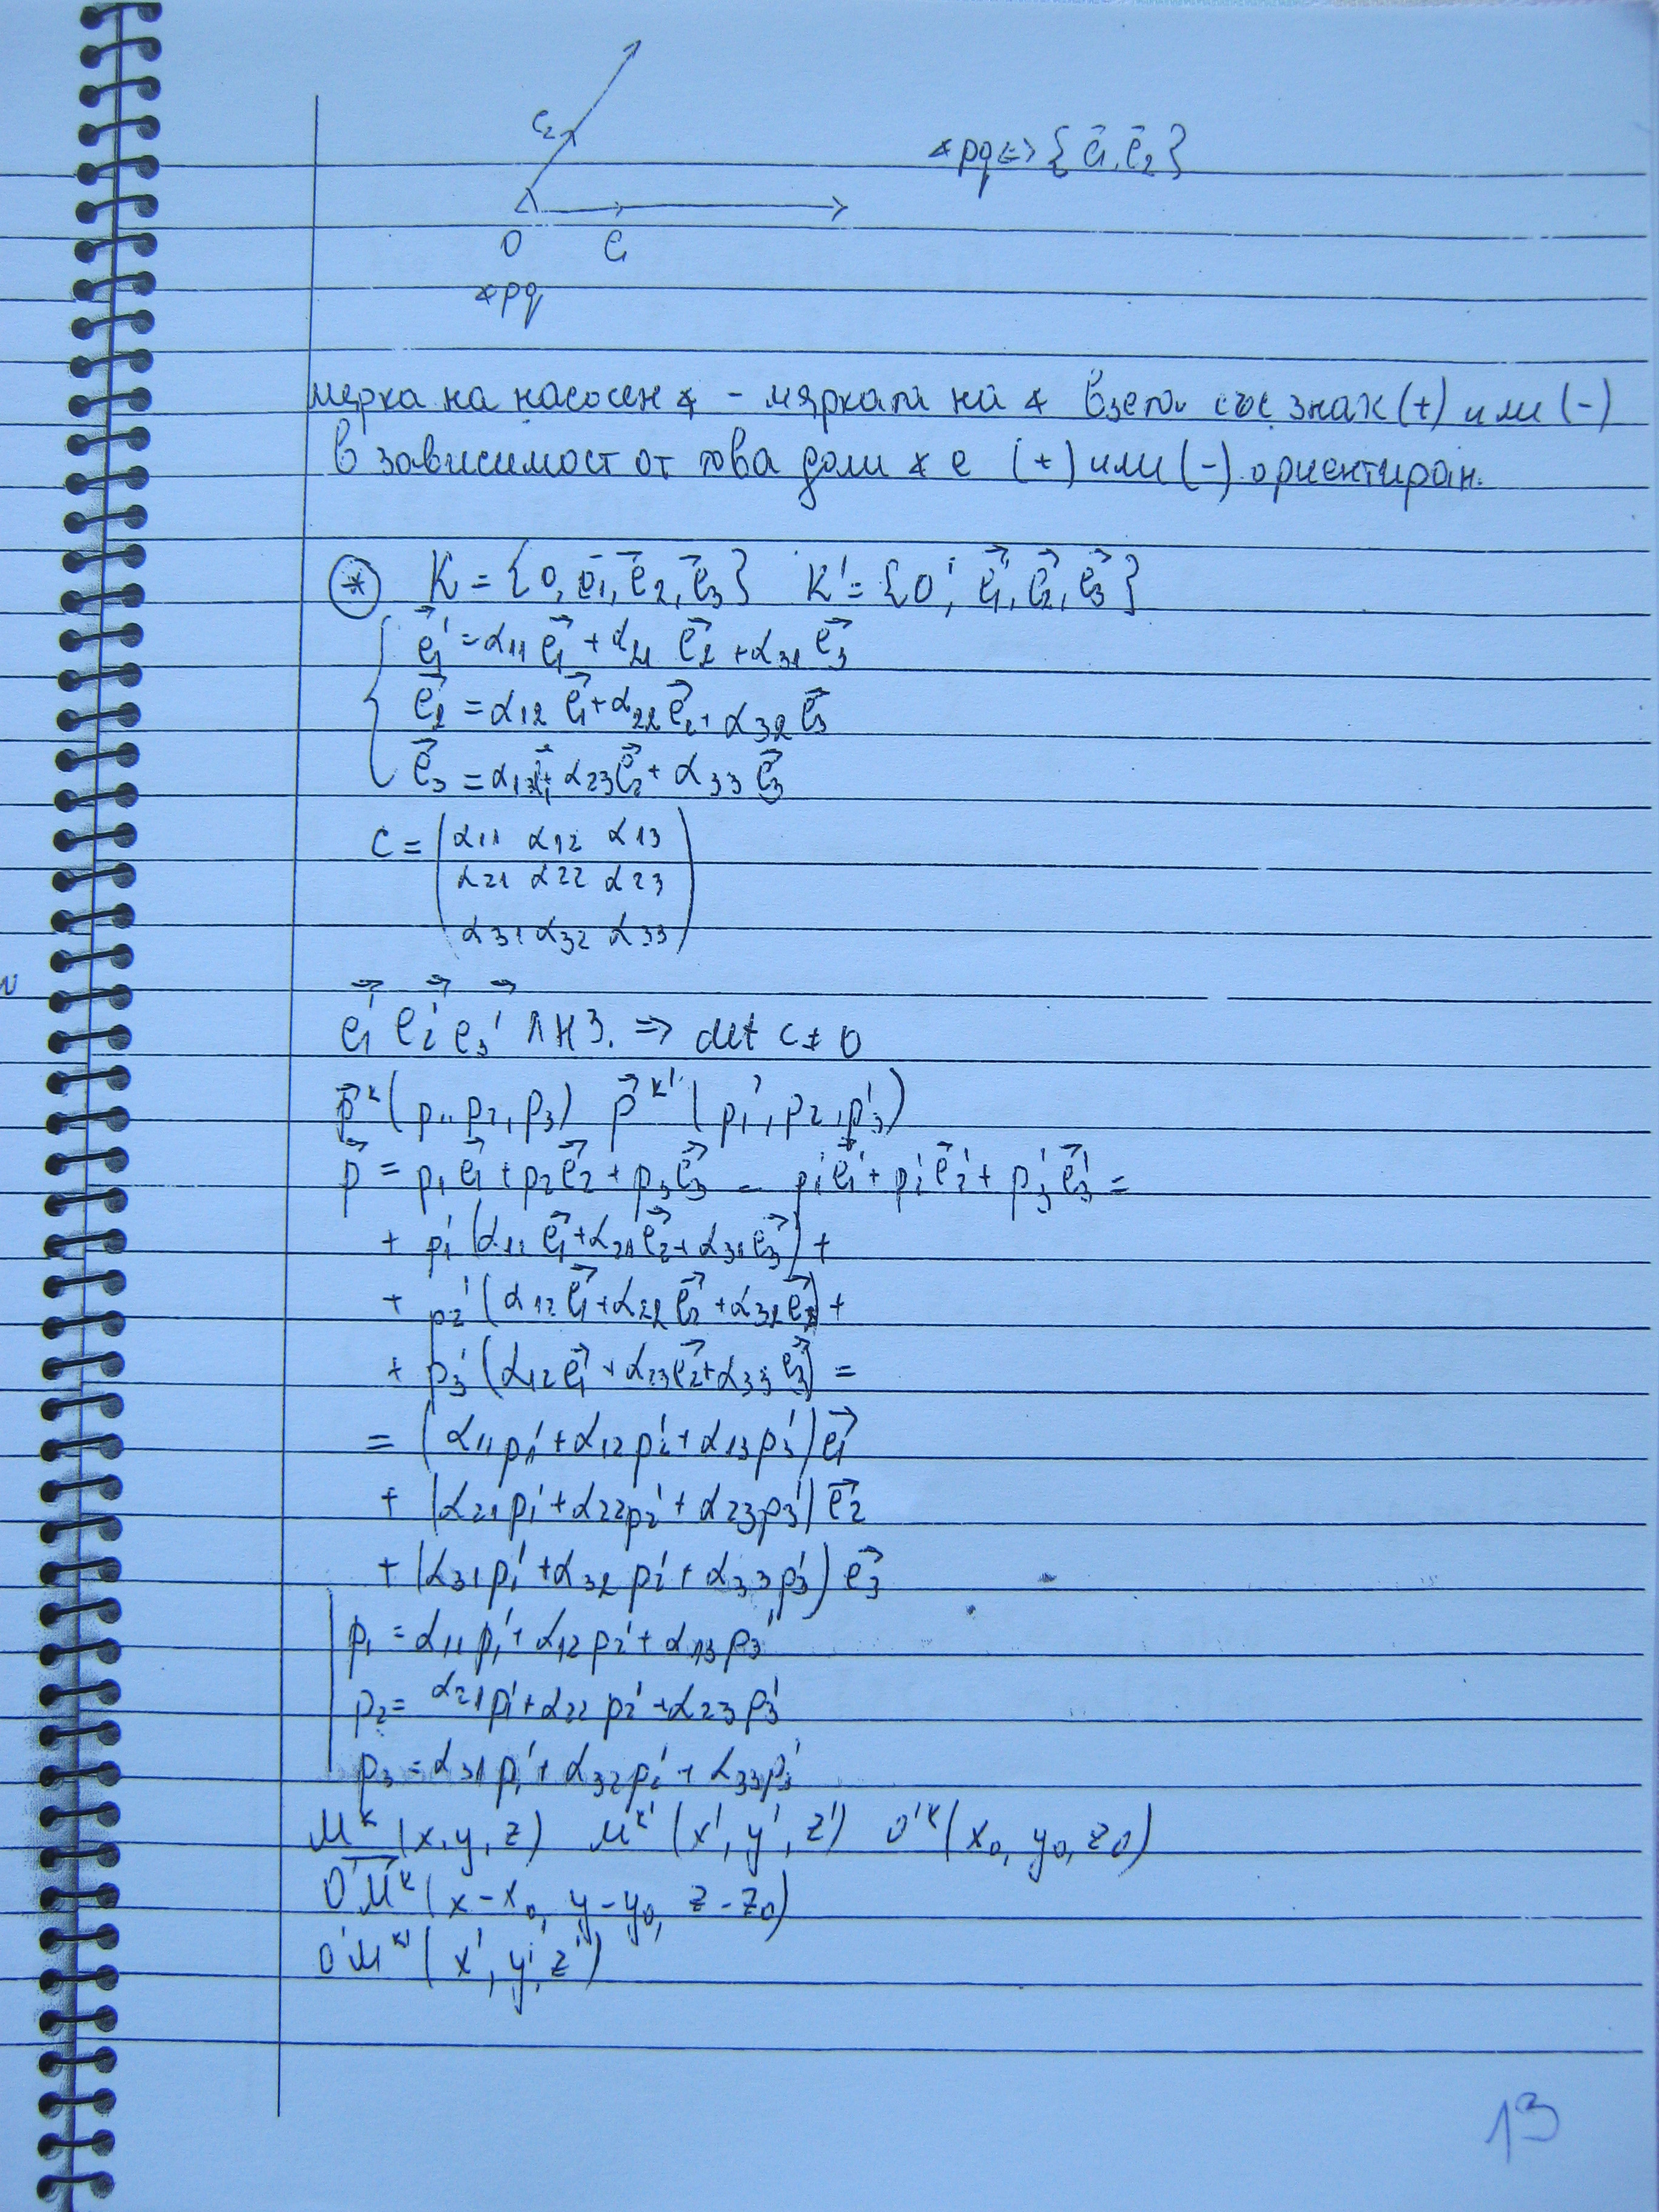 e₂
∢pq ⇔ {e⃗₁, e⃗₂}
O e₁
∢pq
мерка на насочен ∢ - мярката на ∢ взета със знак (+) или (-)
в зависимост от това дали ∢ е (+) или (-) ориентиран.
⊛ K = {O, e⃗₁, e⃗₂, e⃗₃} K' = {O', e⃗₁', e⃗₂', e⃗₃'}
e⃗₁' = α₁₁ e⃗₁ + α₂₁ e⃗₂ + α₃₁ e⃗₃
e⃗₂' = α₁₂ e⃗₁ + α₂₂ e⃗₂ + α₃₂ e⃗₃
e⃗₃ = α₁₃ e⃗₁ + α₂₃ e⃗₂ + α₃₃ e⃗₃
C = ( α₁₁ α₁₂ α₁₃
α₂₁ α₂₂ α₂₃
α₃₁ α₃₂ α₃₃ )
e⃗₁' e⃗₂' e⃗₃' ЛНЗ. ⇒ det C ≠ 0
p⃗ᴷ (p₁, p₂, p₃) p⃗ᴷ' (p₁', p₂', p₃')
p⃗ = p₁e⃗₁ + p₂e⃗₂ + p₃e⃗₃ = p₁'e⃗₁' + p₂'e⃗₂' + p₃'e⃗₃' =
+ p₁' (α₁₁ e⃗₁ + α₂₁ e⃗₂ + α₃₁ e⃗₃) +
+ p₂' (α₁₂ e⃗₁ + α₂₂ e⃗₂ + α₃₂ e⃗₃) +
+ p₃' (α₁₂ e⃗₁ + α₂₃ e⃗₂ + α₃₃ e⃗₃) =
= (α₁₁p₁' + α₁₂p₂' + α₁₃p₃') e⃗₁
+ (α₂₁p₁' + α₂₂p₂' + α₂₃p₃') e⃗₂
+ (α₃₁p₁' + α₃₂p₂' + α₃₃p₃') e⃗₃
p₁ = α₁₁p₁' + α₁₂p₂' + α₁₃p₃'
p₂ = α₂₁p₁' + α₂₂p₂' + α₂₃p₃'
p₃ = α₃₁p₁' + α₃₂p₂' + α₃₃p₃'
Mᴷ (x, y, z) Mᴷ' (x', y', z') O'ᴷ (x₀, y₀, z₀)
O'M⃗ᴷ (x - x₀, y - y₀, z - z₀)
O'Mᴷ' (x', y', z')
13